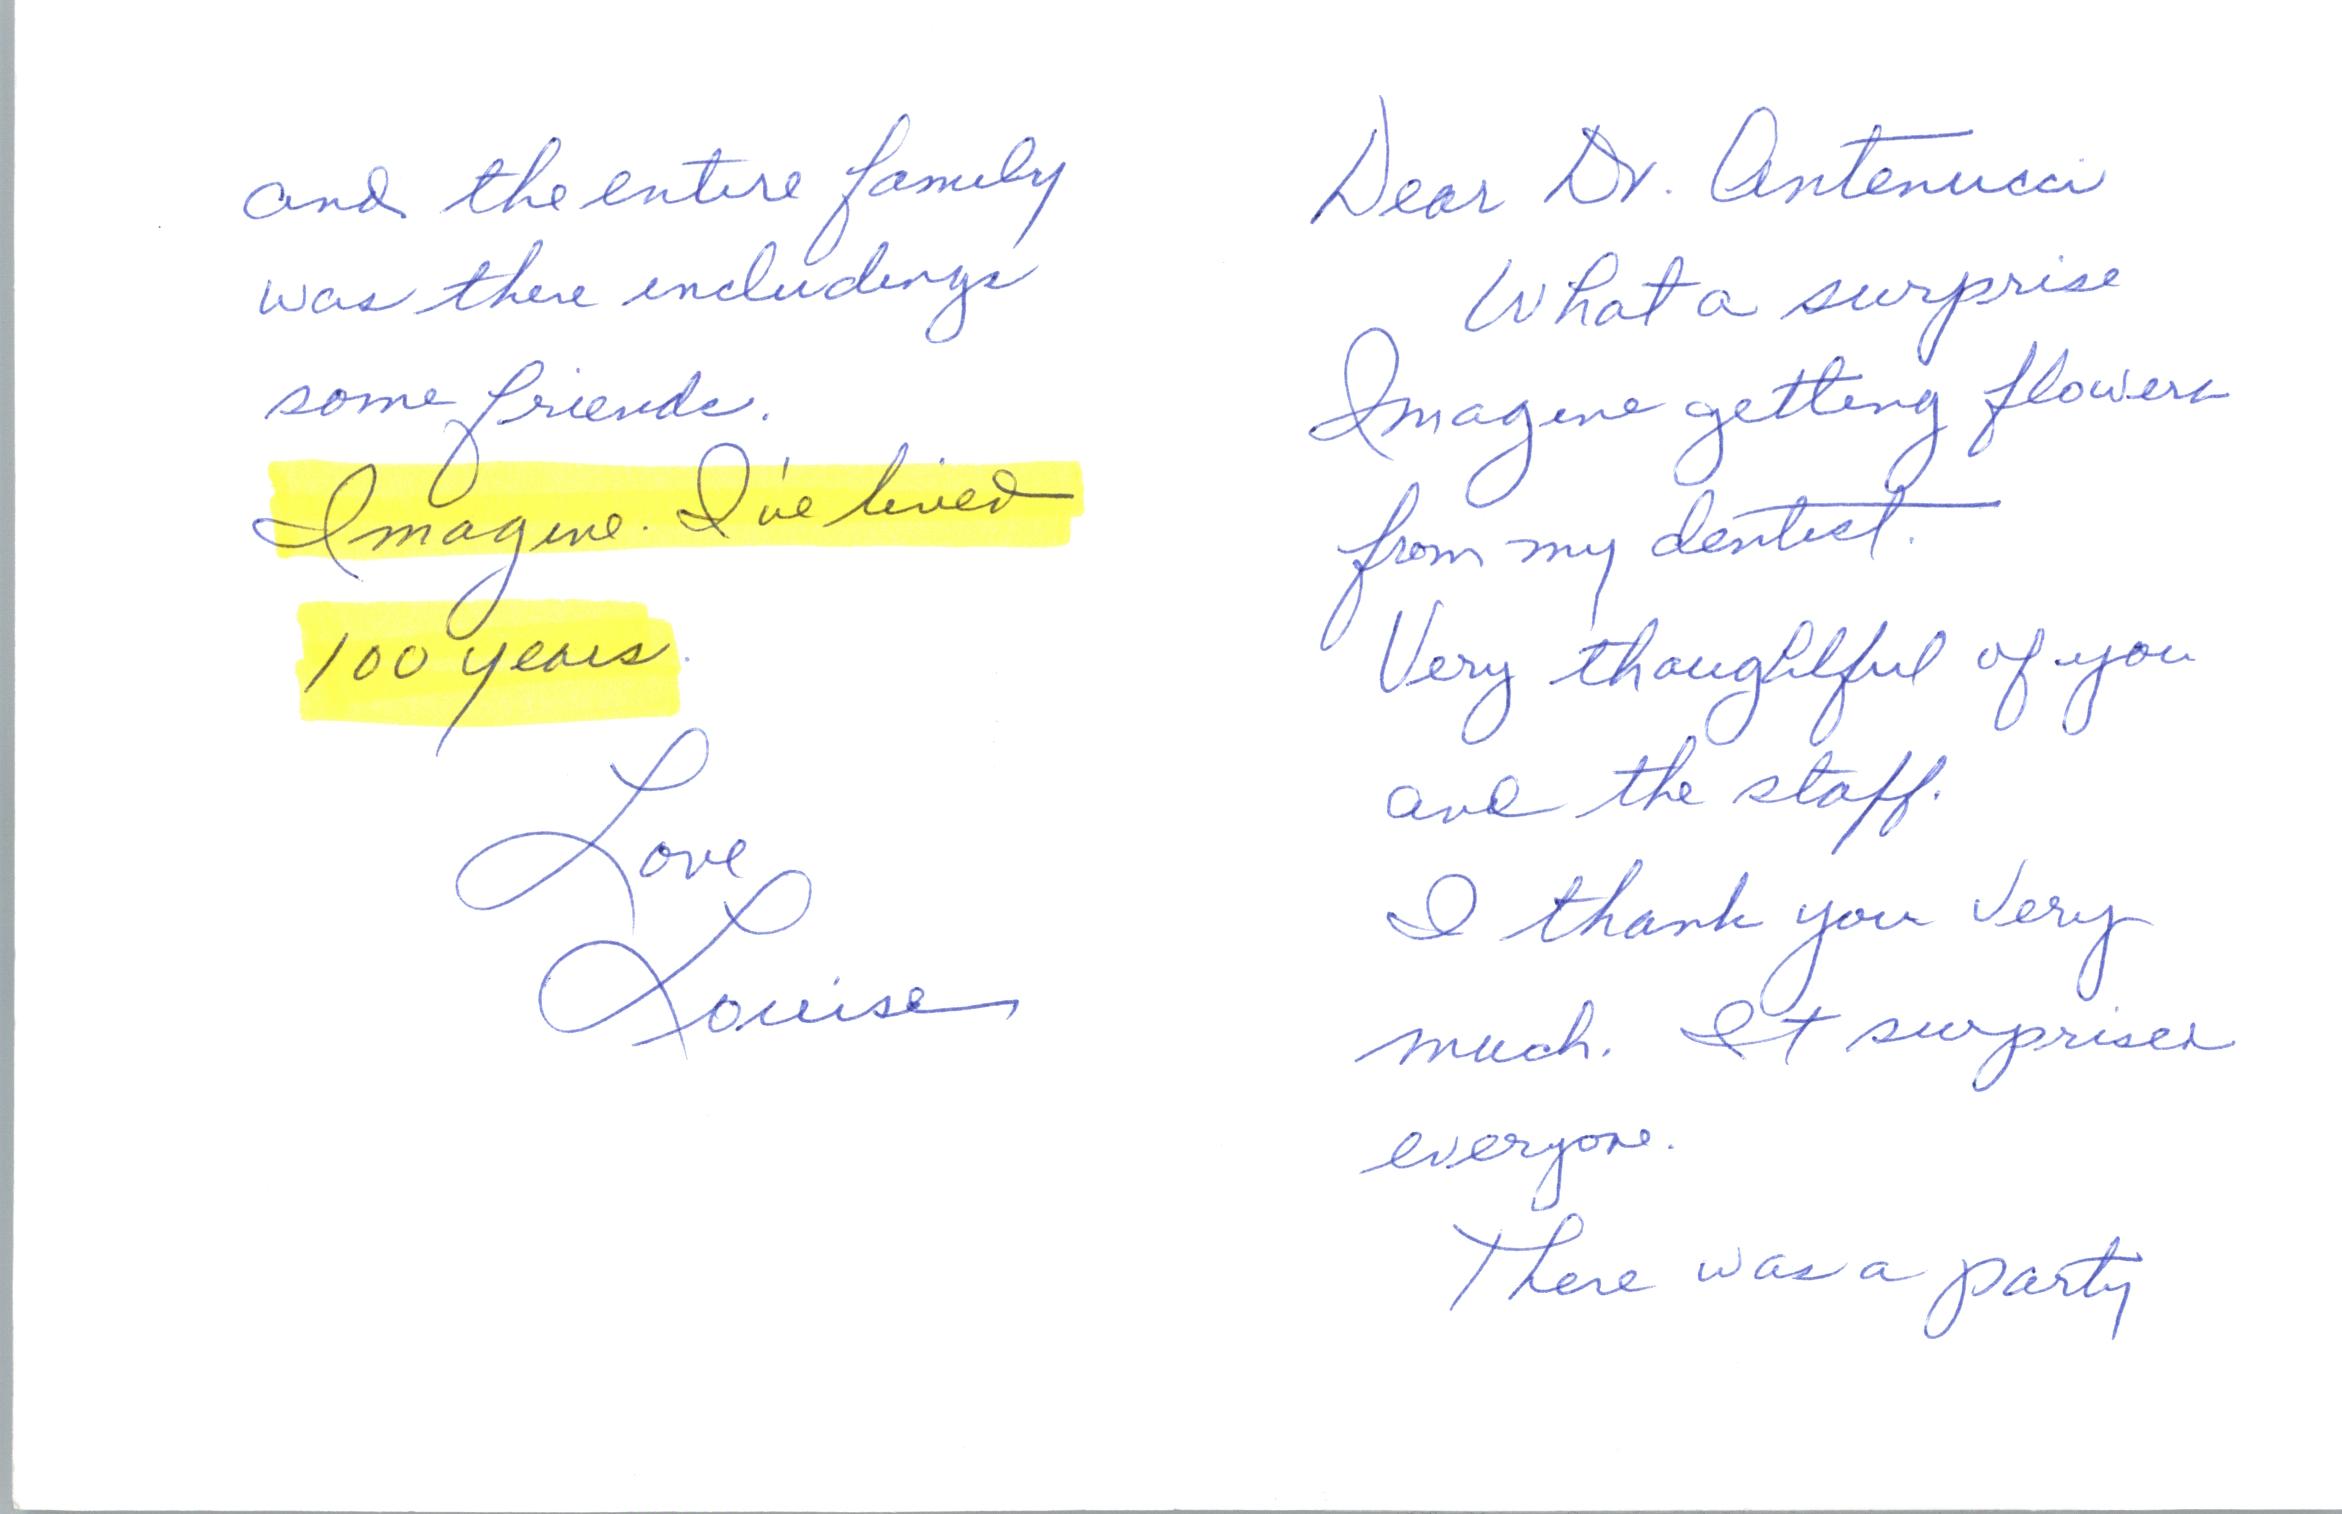 Dear Dr. Antenucci
What a surprise
Imagine getting flowers
from my dentist.
Very thoughtful of you
and the staff.
I thank you very
much. It surprised
everyone.
There was a party
and the entire family
was there includings
some friends.
Imagine. I've lived
100 years.
Love
Louise